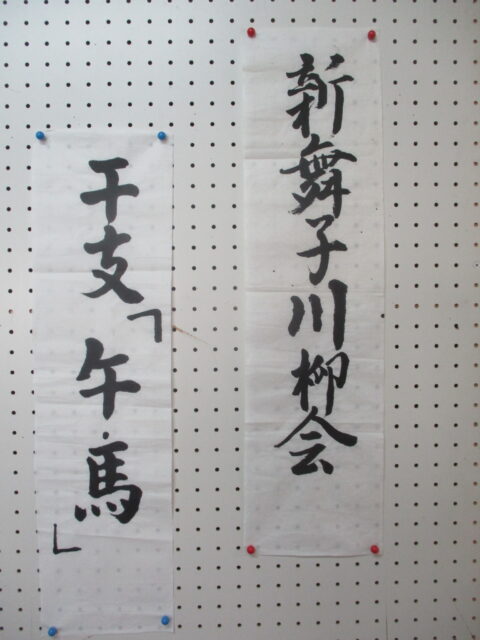 新舞子川柳会
干支「午・馬」